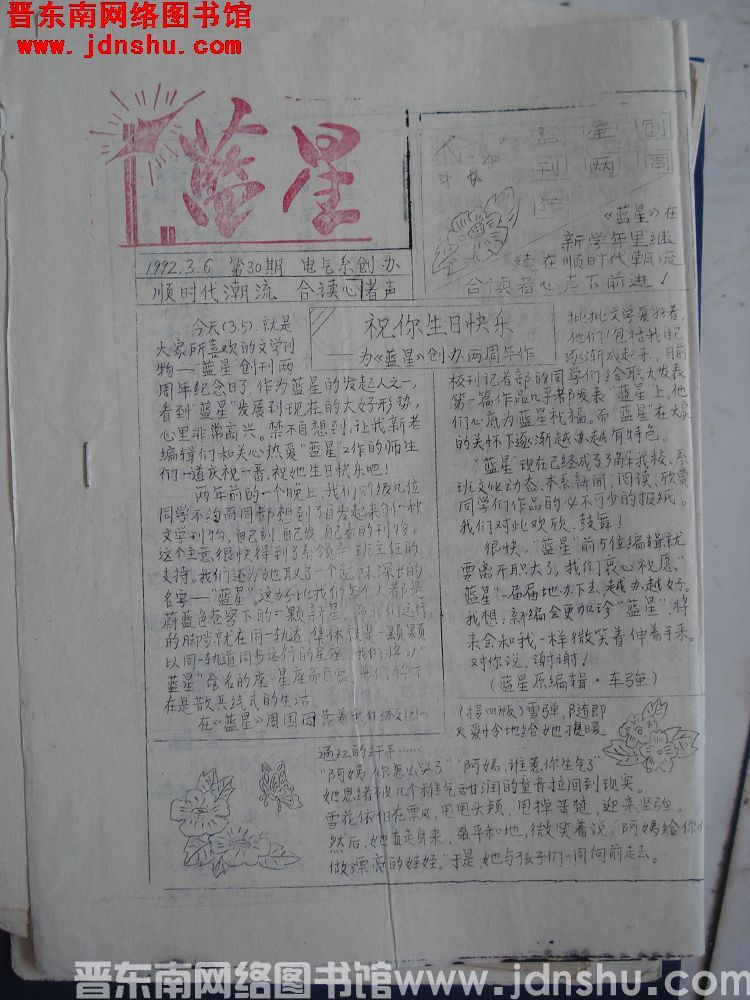 晋东南网络图书馆
www.jdnshu.com
蓝星
1992.3.6 第30期 电气系创办
顺时代潮流 合读心者声
蓝星创
刊两周
年
《蓝星》在
新学年里继
续在顺时代潮流
合读者心声下前进!
祝你生日快乐
——为《蓝星》创办两周年作
今天(3.5),就是
大家所喜欢的文学刊
物——"蓝星"创刊两
周年纪念日了,作为蓝星的发起人之一,
看到"蓝星"发展到现在的大好形势,
心里非常高兴。禁不自想到,让我新老
编辑们和关心热爱"蓝星"工作的师生
们一道庆祝一番,祝她生日快乐吧!
两年前的一个晚上,我们班级几位
同学不约而同都想到了自发起来创一种
文学刊物,自己刻,自己发,自己看的刊物。
这个主意很快得到了系领导、班主任的
支持。我们还为她取了一个意味深长的
名字——"蓝星"。这好比我们每个人都是
蔚蓝色苍穹下的一颗新星。而我们运行
的脚步就在同一轨道,集体就是一颗颗
以同一轨道同步运行的星座,我们将以"
蓝星"命名的座星座而自豪,我们将不
在是散兵线式的生活。
在《蓝星》周围
批批文学爱好者,
他们(包括我自己)
逐渐成起来。目前
校刊记者部的同学们给职大发表
第一篇作品几乎都发表"蓝星"上。他
们心底为蓝星祝福。而"蓝星"在大家
的关怀下逐渐越办越有特色。
"蓝星"现在已经成了了解我校、系
班文化动态、本系新闻、阅读、欣赏
同学们作品的必不可少的报纸。
我们对此欢欣、鼓舞!
很快,"蓝星"前5位编辑就
要离开职大了,我们衷心祝愿"
蓝星"一届届地办下去,越办越好。
我想:新编会更加珍"蓝星",将
来会和我一样微笑着伸着手来。
对你说,谢谢!
(蓝星原编辑·车强)
(接四版)雪弹,随即
又爱怜地给她搜暖
通红的纤手……
"阿姨,你怎么哭了""阿姨,谁惹你生气了"
她思绪被几个稚气甜润的童音拉回到现实。
雪花依旧在飘风,甩甩头颅,甩掉苦楚,迎来坚强。
然后,她直走身来,强平和地,微笑着说:阿姨给你们
做漂亮的娃娃。于是,她与孩子们一同向前走去。
晋东南网络图书馆 www.jdnshu.com